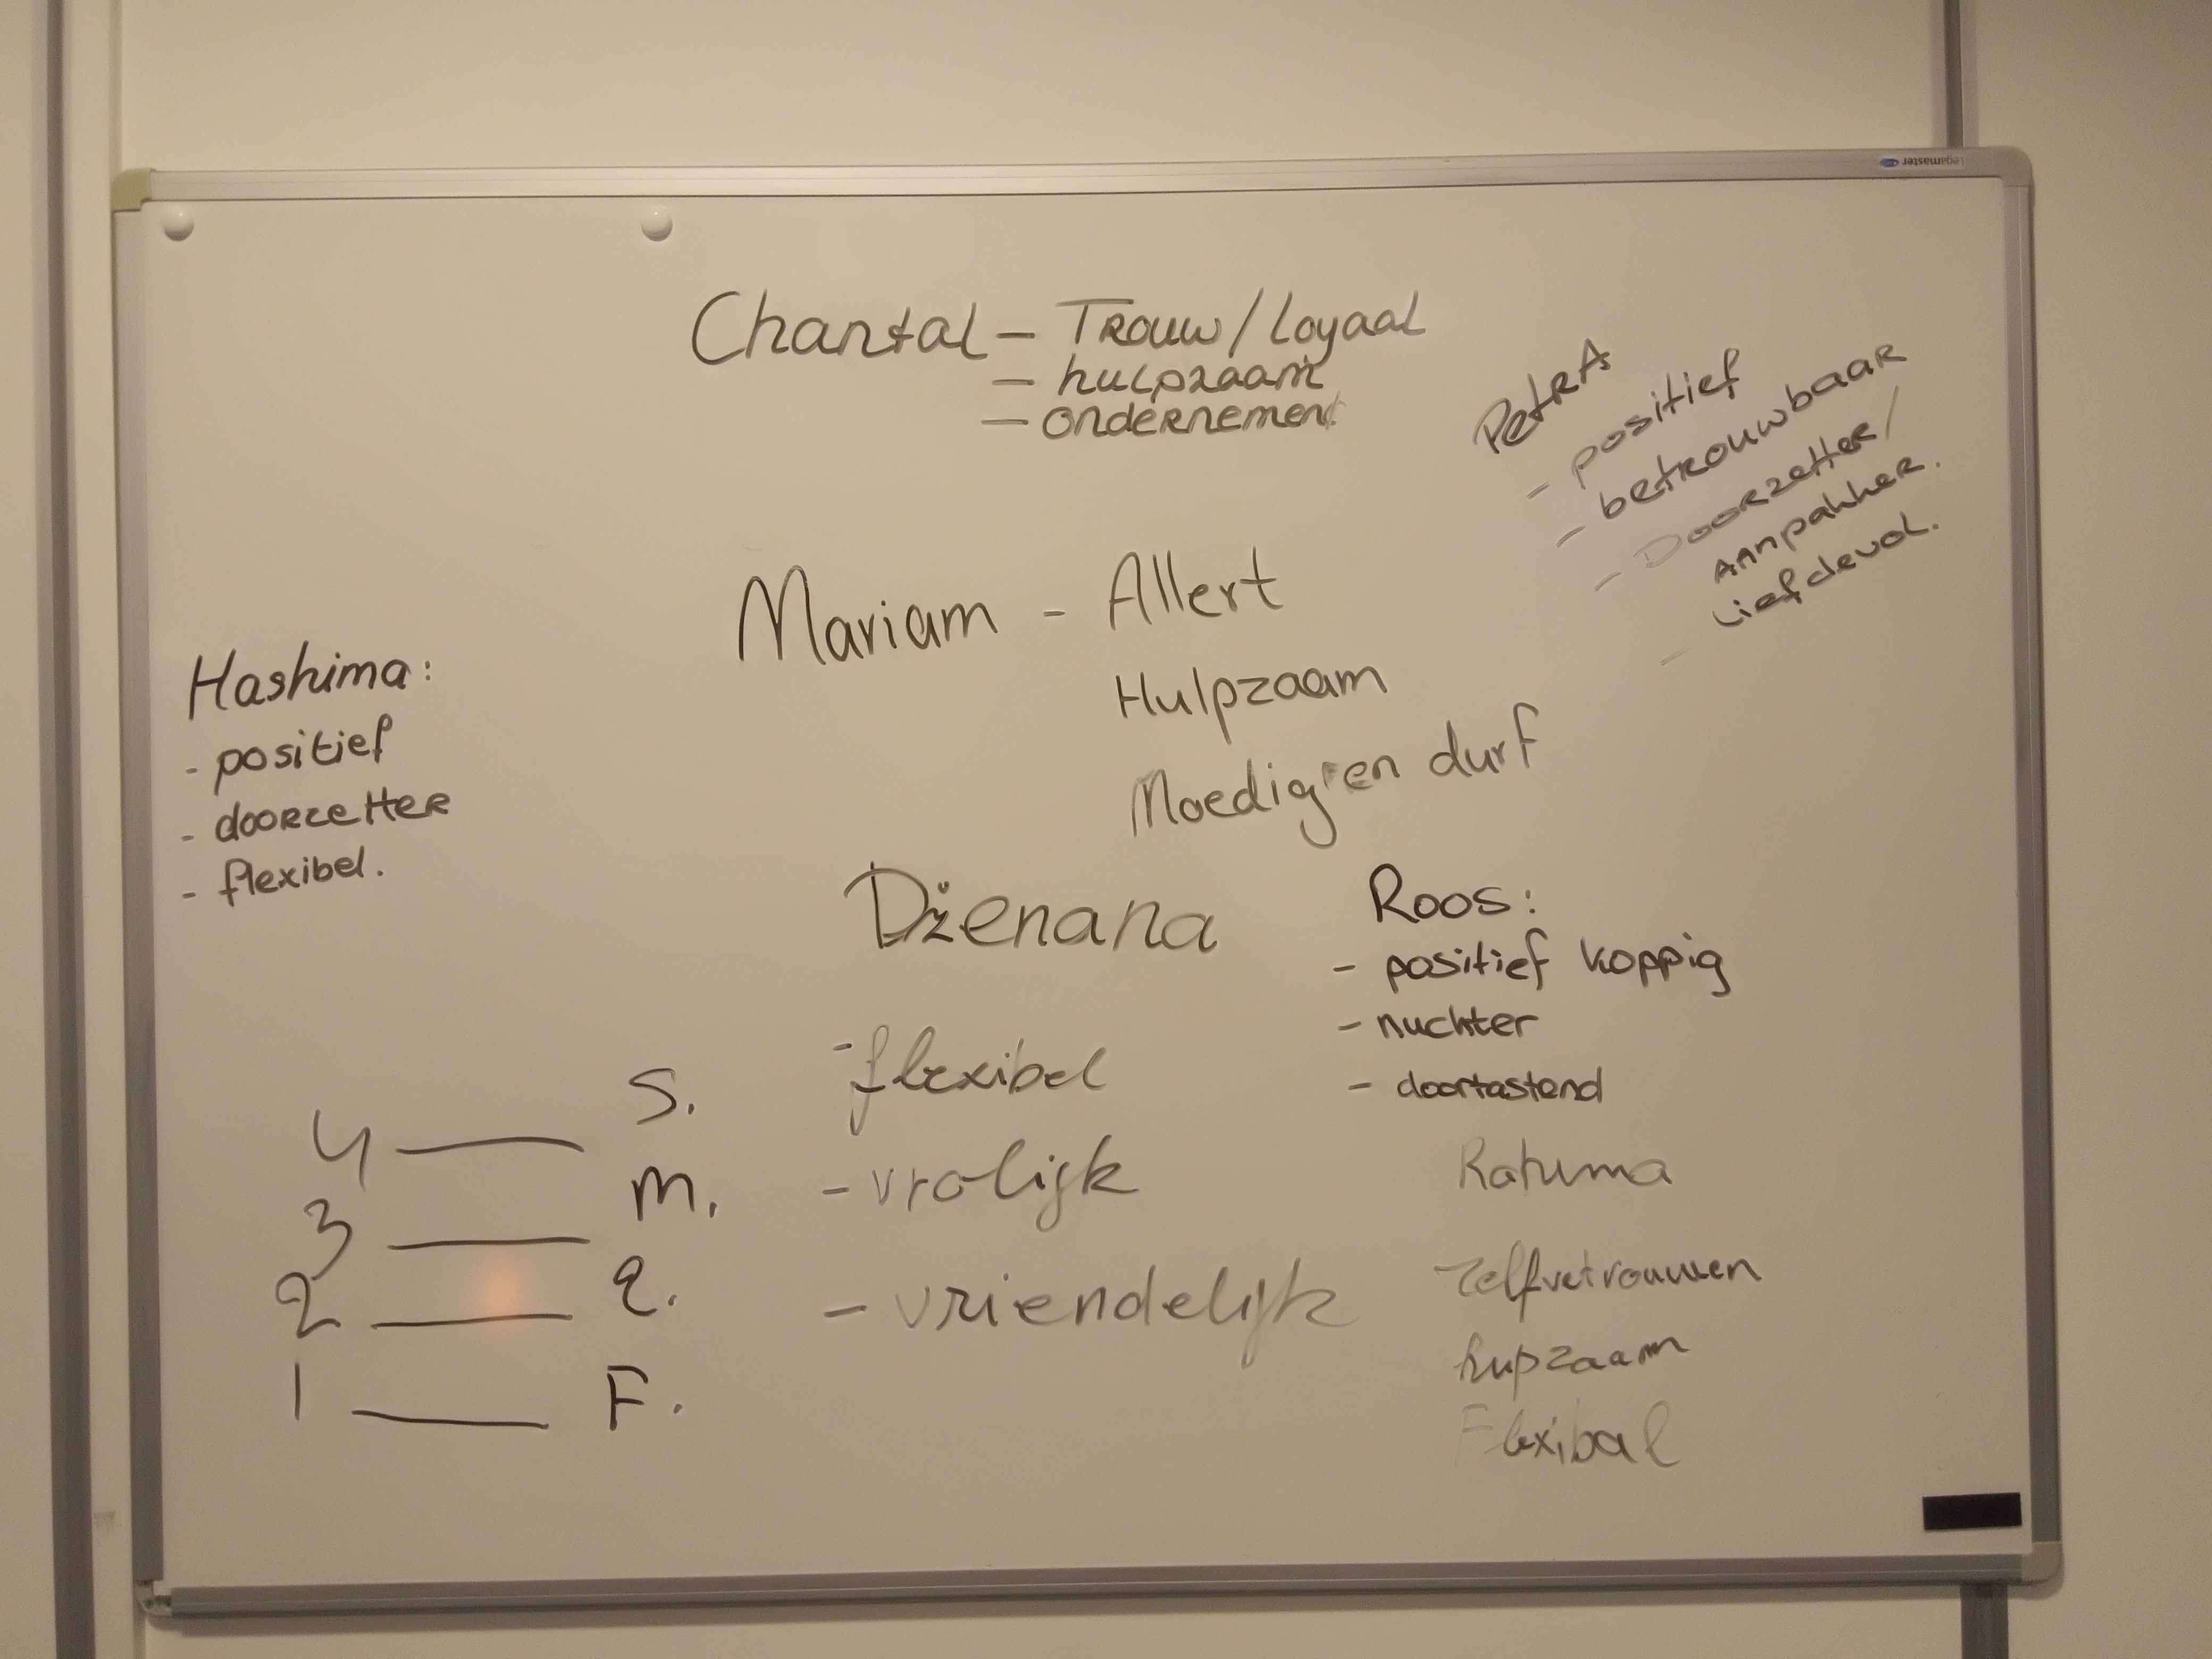 Legamaster
Chantal – Trouw / Loyaal
– hulpzaam
– ondernemen
PetrA
- positief
- betrouwbaar
- Doorzetter /
Aanpakker.
- Liefdevol.
Mariam - Allert
Hulpzaam
Moedig en durf
Hashima:
- positief
- doorzetter
- flexibel.
Dženana
- flexibel
- vrolijk
- vriendelijk
Roos:
- positief koppig
- nuchter
- doortastend
zelfvetrouwen
hupzaam
Flexibal
4 — S.
3 — M.
2 — E.
1 — F.